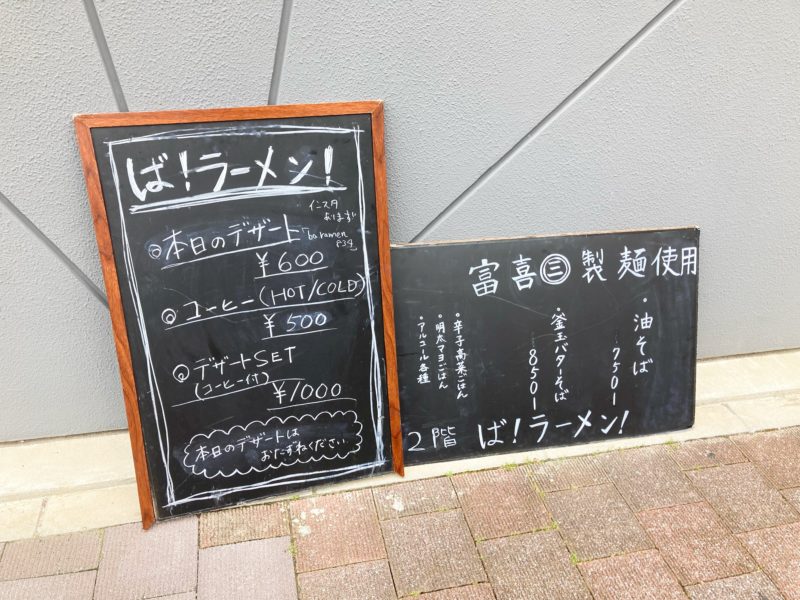 ば！ラーメン！
インスタ
あります
「ba.ramen
834」
◎本日のデザート
¥600
◎コーヒー(HOT/COLD)
¥500
◎デザートSET
(コーヒー付)
¥1000
本日のデザートは
おたずねください
富喜㊂製麺使用
・油そば
750ｌ
・釜玉バターそば
850ｌ
・辛子高菜ごはん
・明太マヨごはん
・アルコール各種
2階 ば！ラーメン！